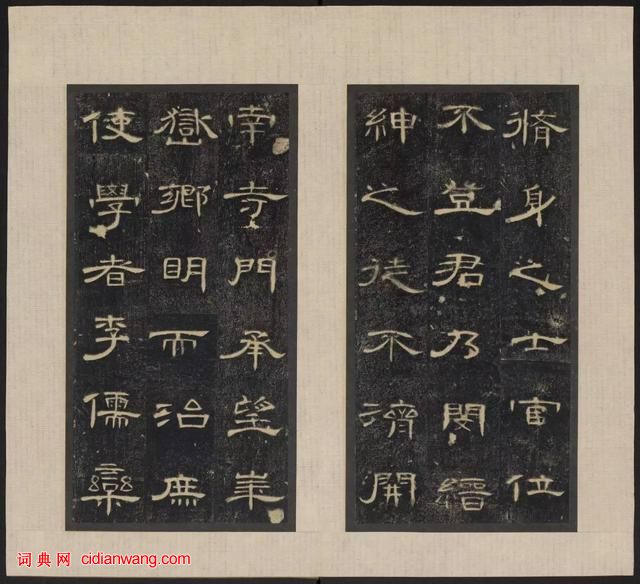 脩身之士官位
不登君乃閔縉
紳之徒不濟開
南寺門承望華
嶽鄉明而治庶
使學者李儒欒
词典网 cidianwang.com